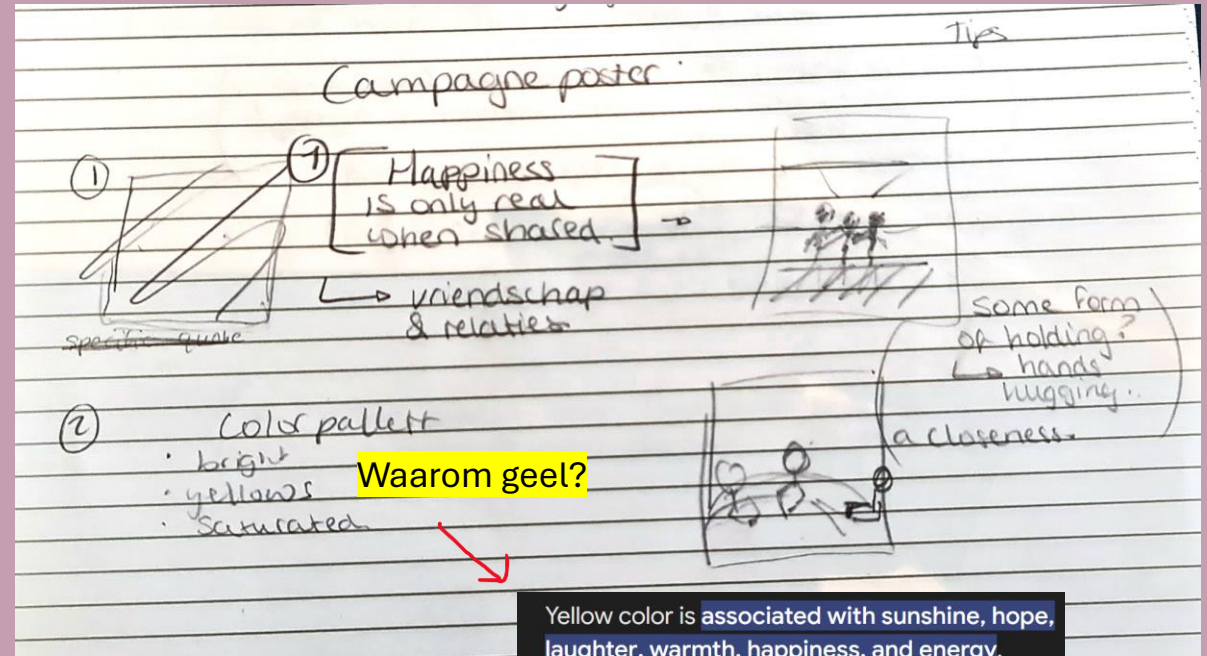 Tips
Campagne poster
①
① Happiness
is only real
when shared
vriendschap
& relaties
specific quote
some form
of holding?
hands
hugging..
a closeness.
② Color pallett
· bright
· yellows
· saturated
Waarom geel?
Yellow color is associated with sunshine, hope,
laughter, warmth, happiness, and energy.